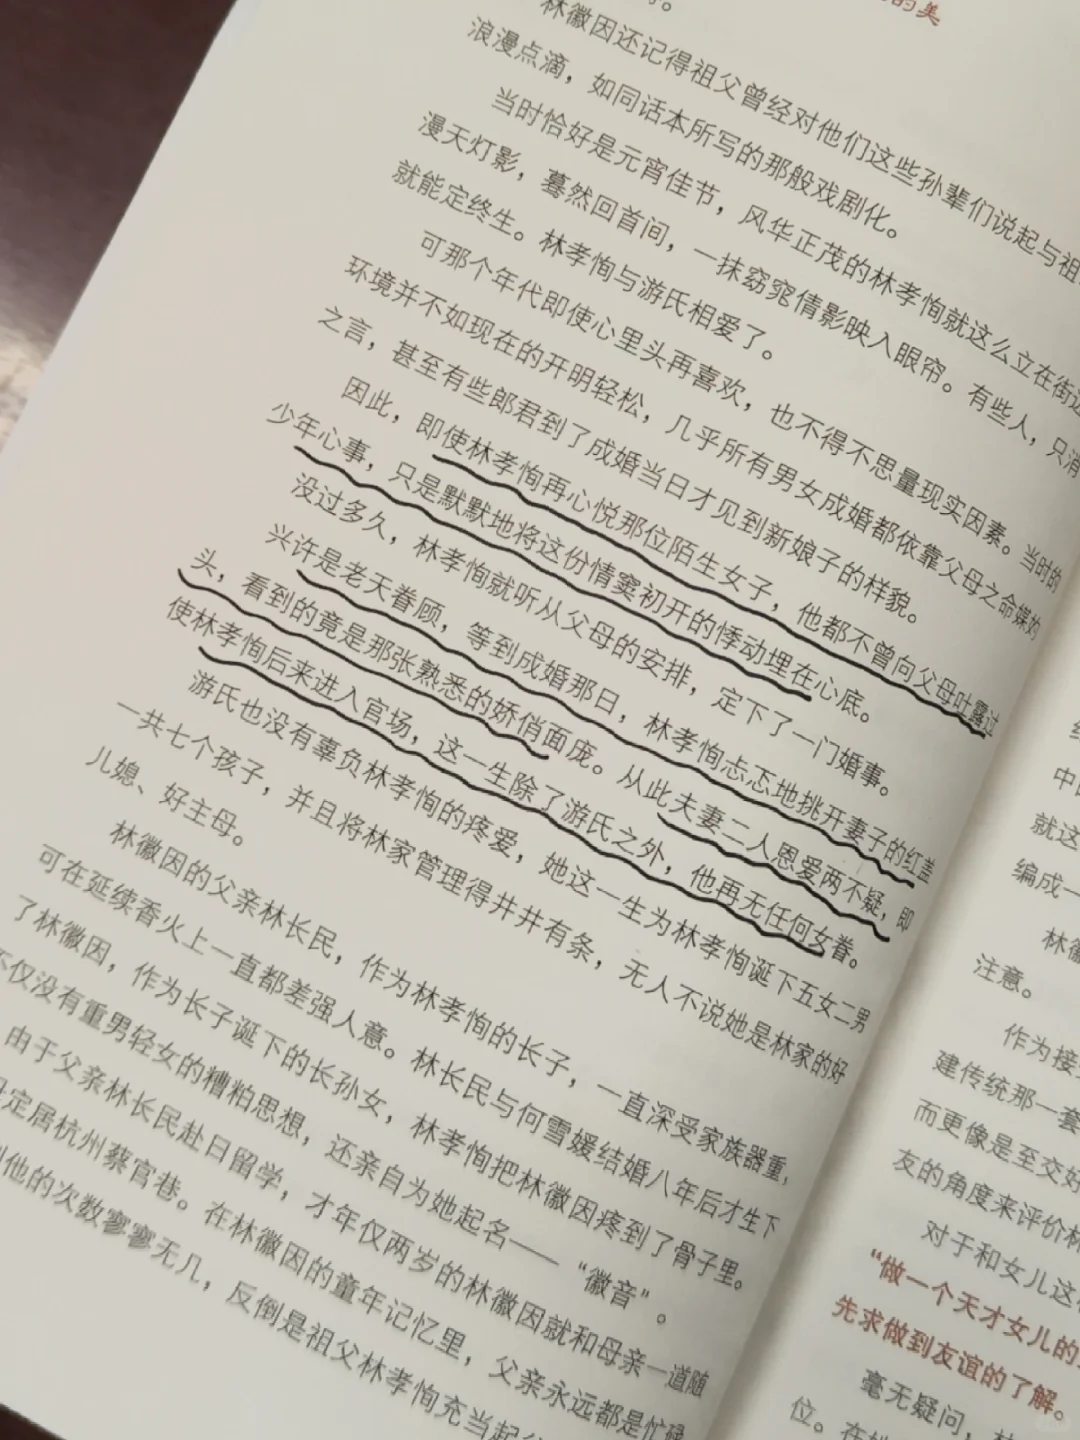 的美
林徽因还记得祖父曾经对他们这些孙辈们说起与祖
浪漫点滴，如同话本所写的那般戏剧化。
当时恰好是元宵佳节，风华正茂的林孝恂就这么立在街边
漫天灯影，蓦然回首间，一抹窈窕倩影映入眼帘。有些人，只消
就能定终生。林孝恂与游氏相爱了。
可那个年代即使心里头再喜欢，也不得不思量现实因素。当时的
环境并不如现在的开明轻松，几乎所有男女成婚都依靠父母之命媒妁
之言，甚至有些郎君到了成婚当日才见到新娘子的样貌。
因此，即使林孝恂再心悦那位陌生女子，他都不曾向父母吐露过
少年心事，只是默默地将这份情窦初开的悸动埋在心底。
没过多久，林孝恂就听从父母的安排，定下了一门婚事。
兴许是老天眷顾，等到成婚那日，林孝恂忐忑地挑开妻子的红盖
头，看到的竟是那张熟悉的娇俏面庞。从此夫妻二人恩爱两不疑，即
使林孝恂后来进入官场，这一生除了游氏之外，他再无任何女眷。
游氏也没有辜负林孝恂的疼爱，她这一生为林孝恂诞下五女二男
一共七个孩子，并且将林家管理得井井有条，无人不说她是林家的好
儿媳、好主母。
林徽因的父亲林长民，作为林孝恂的长子，一直深受家族器重，
可在延续香火上一直都差强人意。林长民与何雪媛结婚八年后才生下
了林徽因，作为长子诞下的长孙女，林孝恂把林徽因疼到了骨子里。
不仅没有重男轻女的糟粕思想，还亲自为她起名——“徽音”。
由于父亲林长民赴日留学，才年仅两岁的林徽因就和母亲一道随
定居杭州蔡官巷。在林徽因的童年记忆里，父亲永远都是忙碌
他的次数寥寥无几，反倒是祖父林孝恂充当起
中
就这
编成一
林徽
注意。
作为接
建传统那一套
而更像是至交好
友的角度来评价林
对于和女儿这
“做一个天才女儿的
先求做到友谊的了解。
毫无疑问，林
位。在